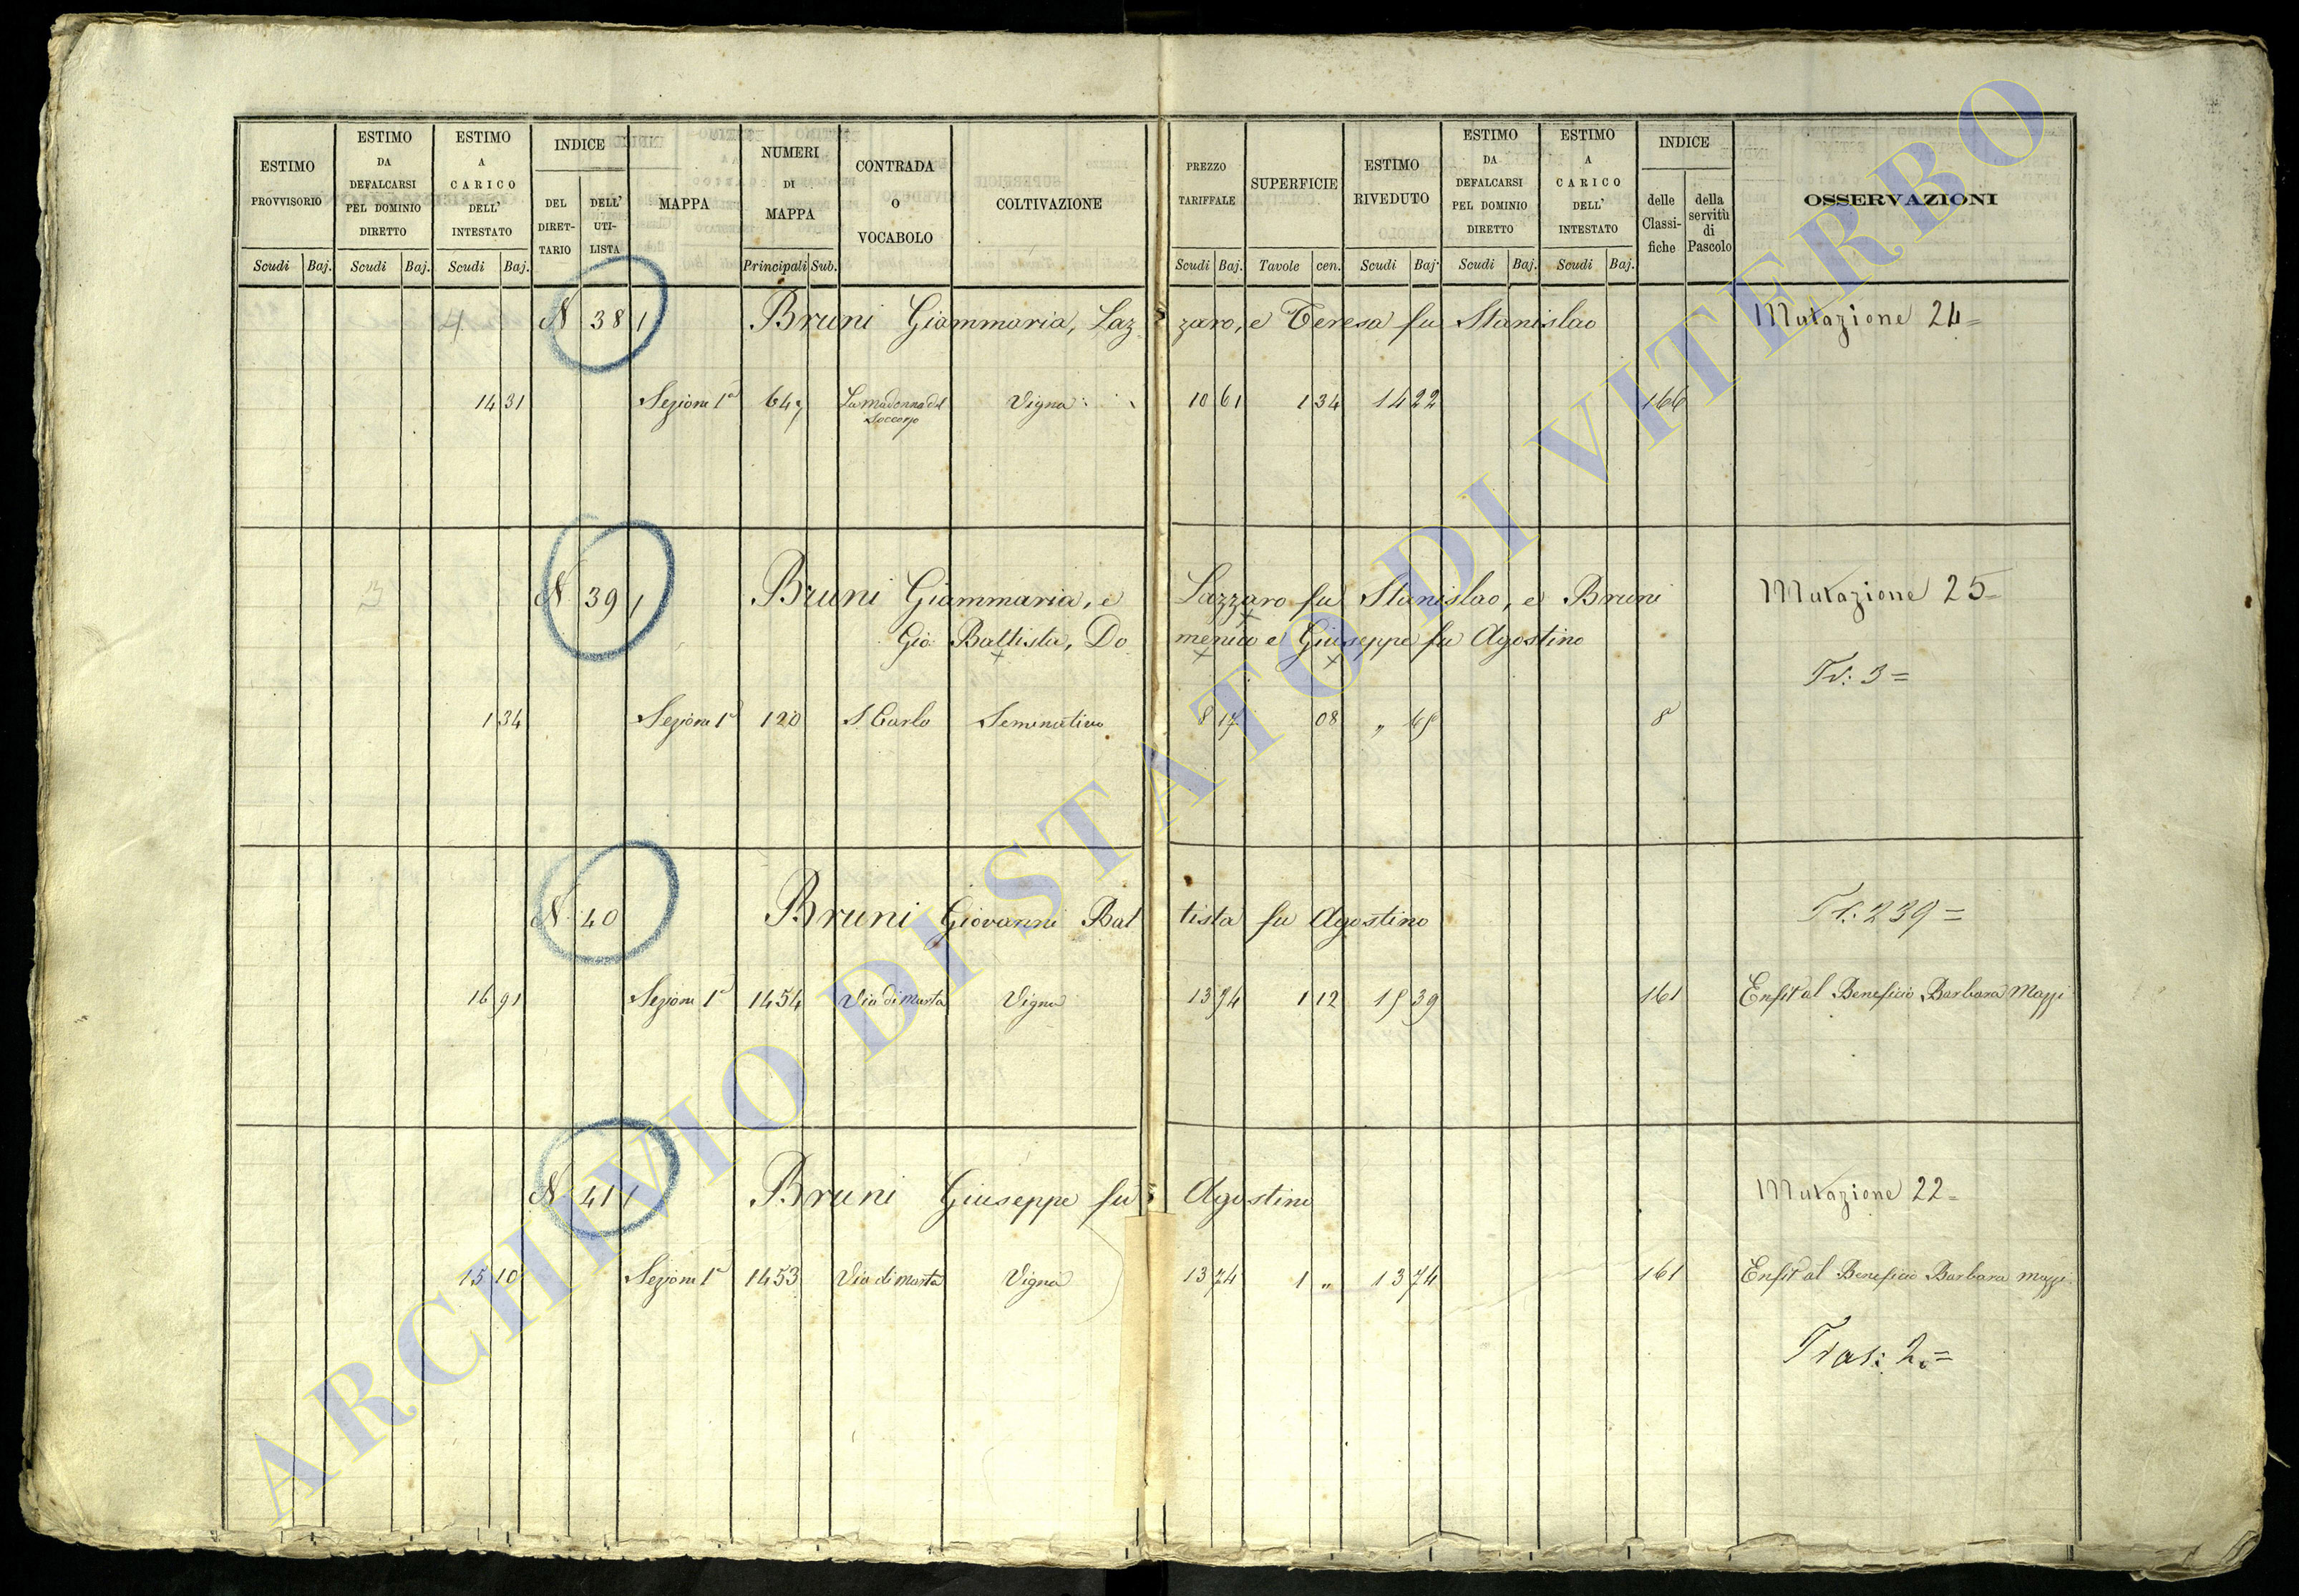 ESTIMO PROVVISORIO Scudi Baj.
ESTIMO DA DEFALCARSI PEL DOMINIO DIRETTO Scudi Baj.
ESTIMO A CARICO DELL' INTESTATO Scudi Baj.
INDICE DEL DIRET-TARIO DELL' UTI-LISTA
MAPPA
NUMERI DI MAPPA Principali Sub.
CONTRADA O VOCABOLO
COLTIVAZIONE
PREZZO TARIFFALE Scudi Baj.
SUPERFICIE Tavole cen.
ESTIMO RIVEDUTO Scudi Baj.
ESTIMO DA DEFALCARSI PEL DOMINIO DIRETTO Scudi Baj.
ESTIMO A CARICO DELL' INTESTATO Scudi Baj.
INDICE delle Classi-fiche della servitù di Pascolo
OSSERVAZIONI
4 N 38 1 Bruni Giammaria, Laz zaro, e Teresa fu Stanislao Mutazione 24=
14 31 Sezione 1ª 647 La Madonna del Vigna 10 61 1 34 14 22 166
Soccorso
3 N 39 1 Bruni Giammaria, e Lazzaro fu Stanislao, e Bruni Mutazione 25=
Gio: Battista, Do menico e Giuseppe fu Agostino
Tr: 3=
1 34 Sezione 1ª 120 S. Carlo Seminativo 8 17 08 " 65 8
N 40 Bruni Giovanni Bat tista fu Agostino Tr: 239=
16 91 Sezione 1ª 1454 Via di Marta Vigna 13 74 1 12 15 39 161 Enfit al Beneficio Barbara Mazzi
N 41 1 Bruni Giuseppe fu Agostino Mutazione 22=
15 10 Sezione 1ª 1453 Via di Marta Vigna 13 74 1 " 13 74 161 Enfit al Beneficio Barbara Mazzi
Tras: 2.=
ARCHIVIO DI STATO DI VITERBO